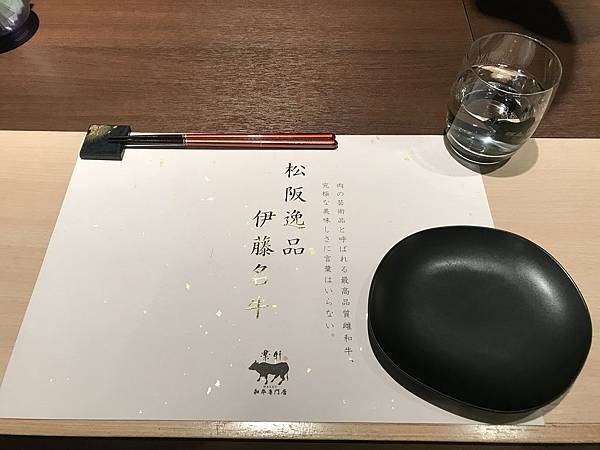 肉の芸術品と呼ばれる最高品質雌和牛、
究極な美味しさに言葉はいらない。
松阪逸品
伊藤名牛
和牛専門店